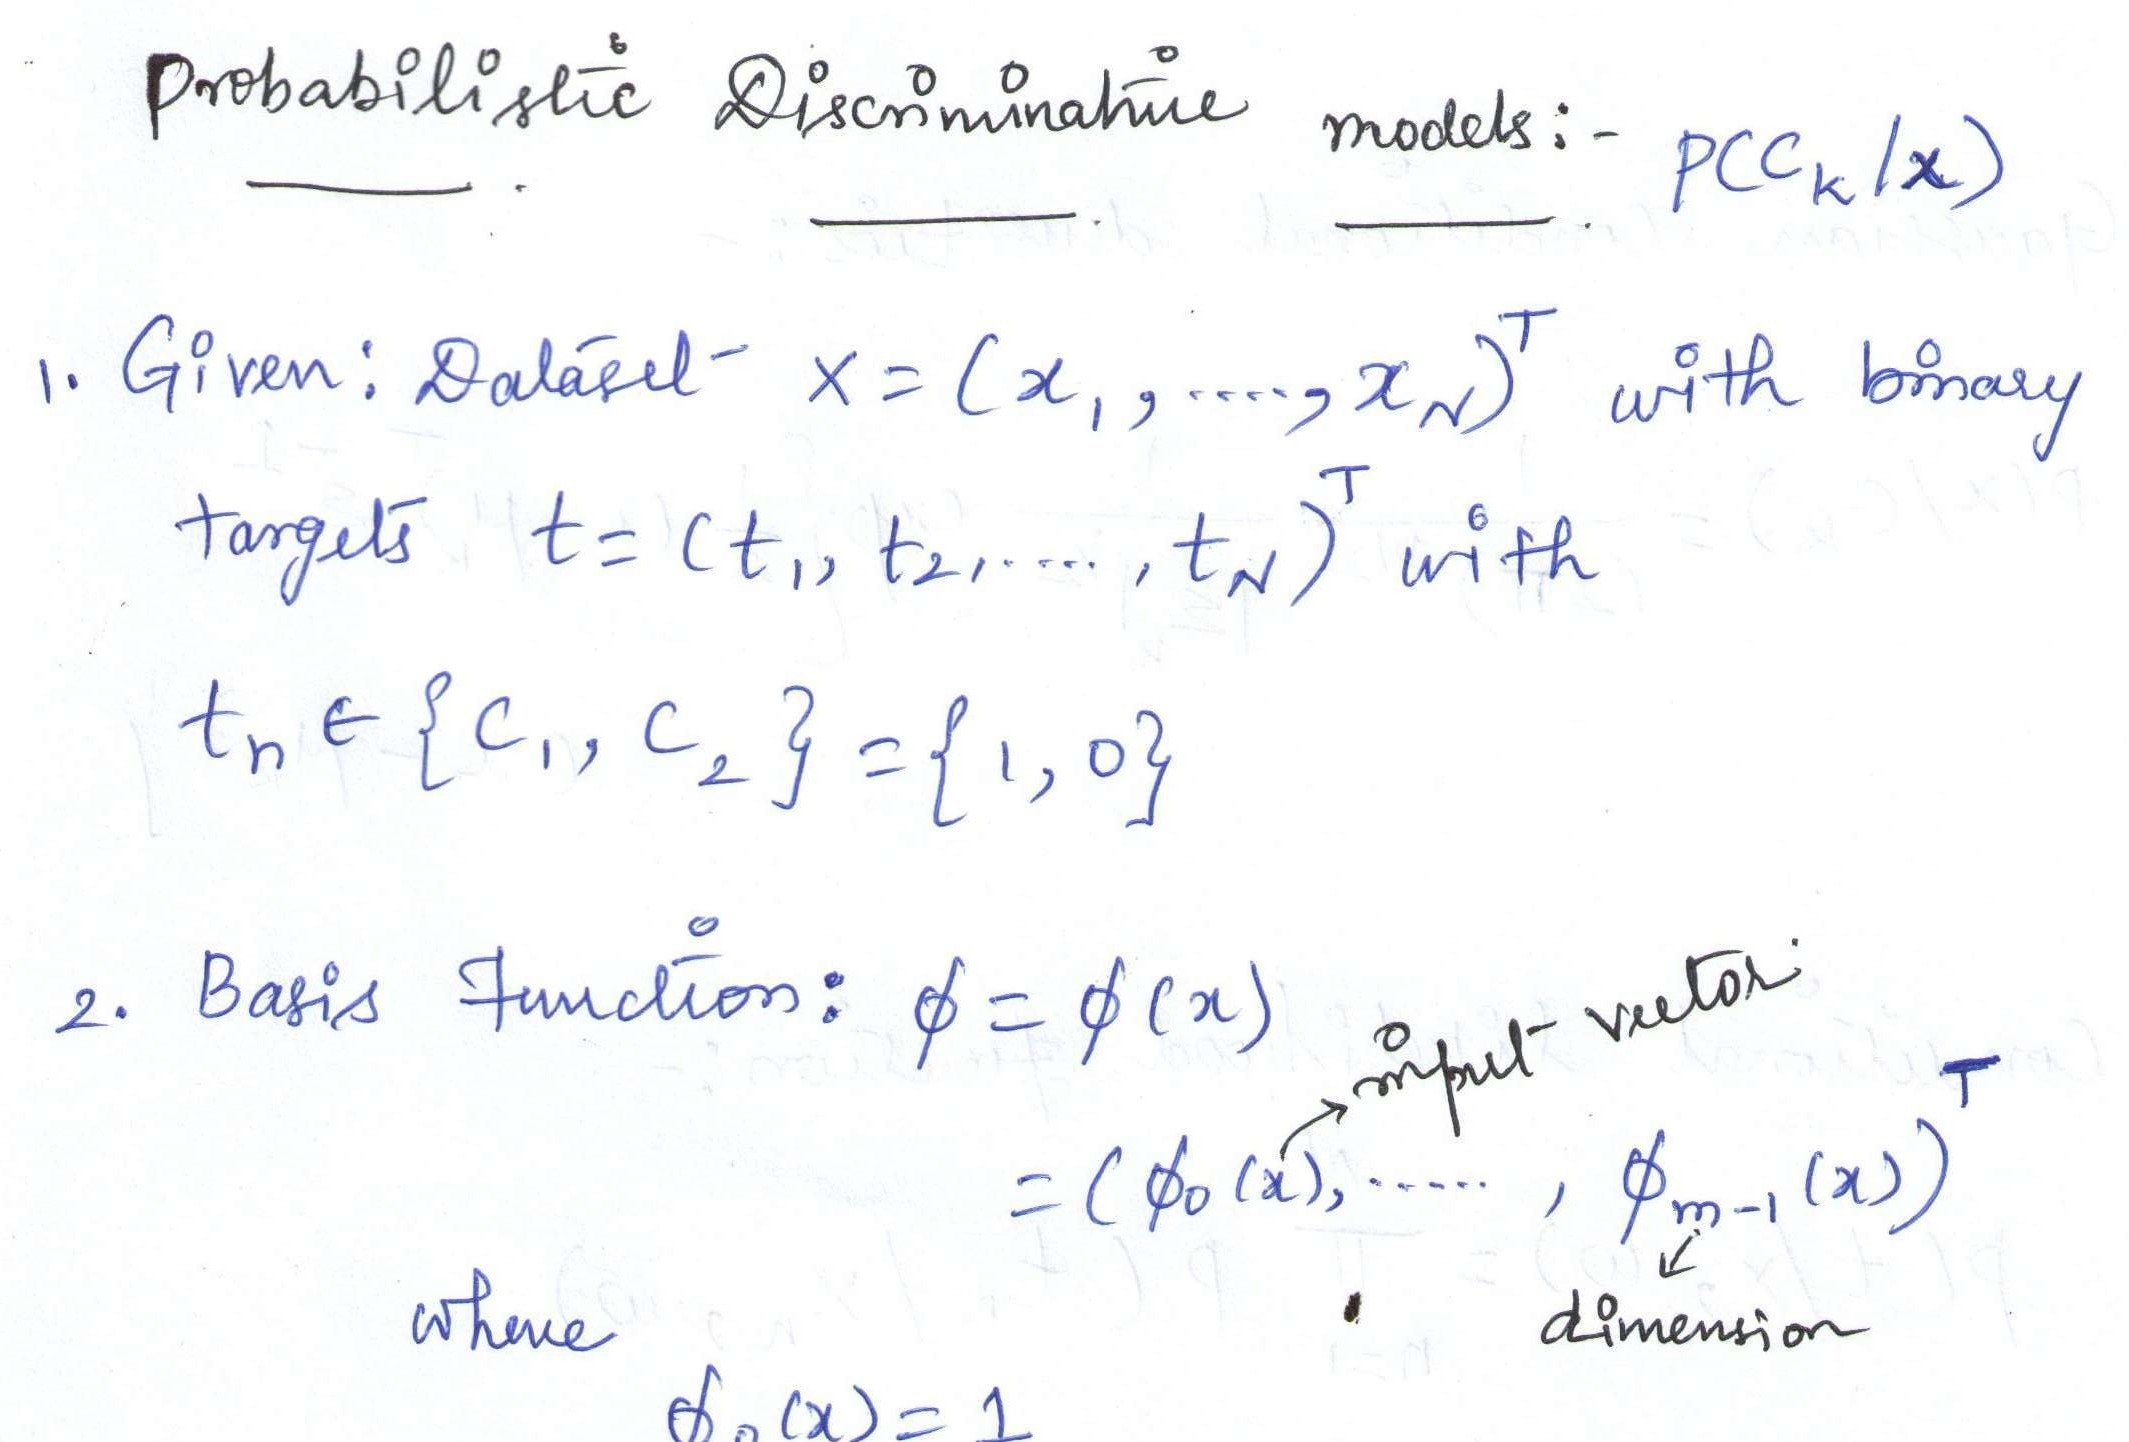 Probabilistic Discriminative models:- P(Ck/x)
1. Given: Dataset X = (x1, ....., xN)^T with binary
targets t = (t1, t2, ....., tN)^T with
tn ∈ {C1, C2} = {1, 0}
2. Basis Function: φ = φ(x)
input vector
= (φ0(x), ......, φm-1(x))^T
dimension
where
φ0(x) = 1